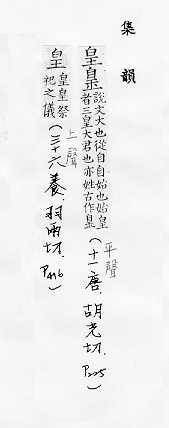 集韻
皇𦤃說文大也從自自始也始皇者三皇大君也亦姓古作𦤃(平聲 十一唐.胡光切.P225)
皇皇皇祭祀之儀(上聲 三十六養.羽兩切.P416)